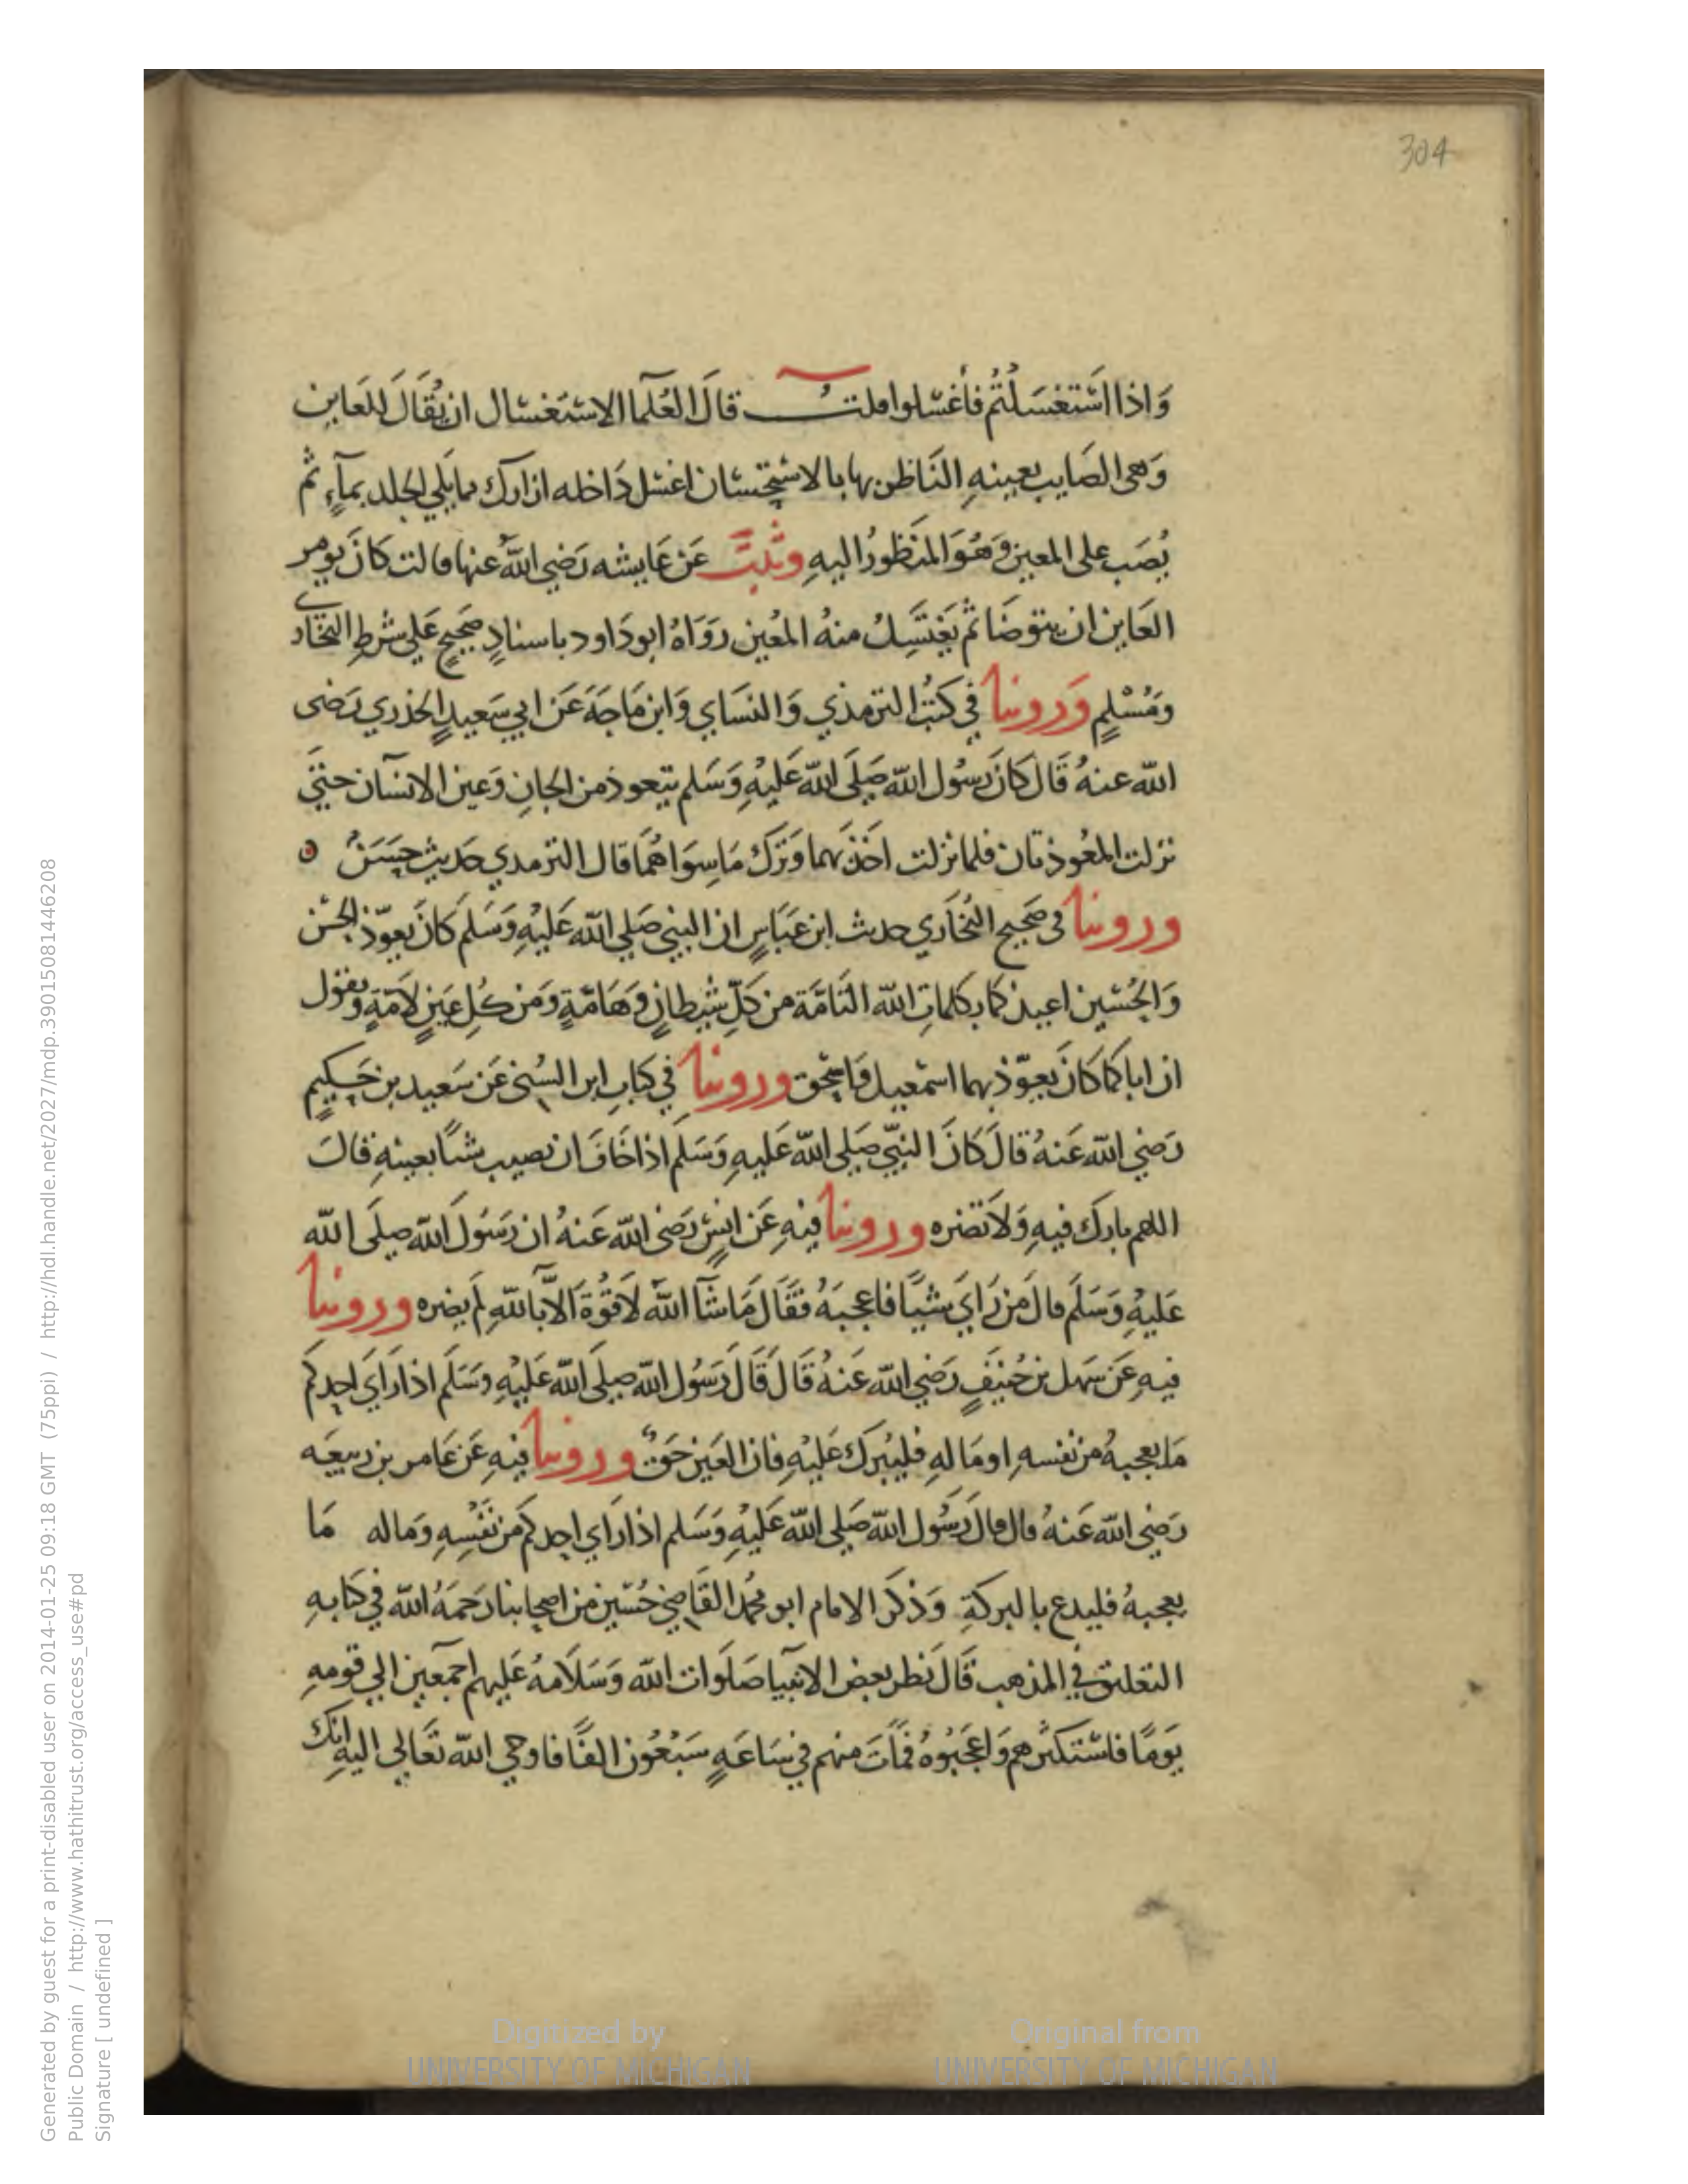 304
وَاذا اسْتَغسَلْتُم فَأغسْلوا قلت قالَ العُلمآ الاستغسال ان يُقَالَ للعَاين
وَهى الصَايب بعينهِ النَاظر بها بالاستحسان اغسل دَاخله ازارك مما يلي الجلد بمآءٍ ثم
يُصَب على المعين وَهُوَ المنَظورُ اليهِ وثبَتَ عَن عَايشه رَضي اللّهُ عنها قالت كانَ يومر
العَاين ان يتوضَا ثم يَغتَسِلُ منهُ المعُين رَوَاهُ ابو دَاود باسنادٍ صحَيحٍ عَلي شرطِ البخَاري
وَمُسْلمٍ وَروينا في كتُب الترمذي وَالنسَاي وَابن مَاجَهَ عَن ابي سَعيدٍ الخدري رَضى
اللّه عنهُ قَال كانَ رسُول اللّه صَلَى اللّه عَليْهِ وَسَلم يتعوذ من الجانِ وَعين الانسَان حتيَ
نزلت المعُوذتان فلما نزلت اخَذ بهما وَترَكَ مَا سِوَاهُمَا قال الترمدي حَديث حسَنُ
وروينا في صَحيح البُخَاري حديث ابن عبَاسٍ ان النبي صَلي اللّه عَليْهِ وَسَلَم كانَ يعوّذ الحسَن
وَالحُسَين اعيذكما بكلماتِ اللّه التَامَة من كلِّ شيطانٍ وَهَامّةٍ وَمن كُلِ عَينٍ لامَّةٍ ويقول
ان اباكما كانَ يعوّذ بهما اسمعيل وَاسحَق وروينا في كتابِ ابن السُني عَن سَعيد بن حَكيمٍ
رَضي اللّه عَنهُ قالَ كانَ النبيّ صَلي اللّه عَليهِ وَسَلَم اذا خَافَ ان يصيب شيًا بعينهِ قالَ
اللهم بارك فيهِ وَلا تضره وروينا فيهِ عَن انسٍ رَضى اللّه عَنهُ ان رَسُولَ اللّه صلَى اللّه
عَليْهِ وَسَلَم قال مَن رَايَ شيًا فاعجبَهُ فقَالَ مَا شآَ اللّهُ لاقوُةَ الاَّ باللّهِ لم يضره وروينا
فيهِ عَن سَهل بن حُنيَفٍ رَضي اللّه عَنهُ قَالَ قَالَ رَسُول اللّه صلَى اللّه عَليْهِ وَسَلَم اذا رَايَ احدكم
مَا يعجبهُ من نفسهِ او مَالهِ فليُبرك عَليْهِ فان العَين حَقٌ وروينا فيهِ عَن عَامر بن ربيعَه
رَضي اللّه عَنهُ قال قال رَسُول اللّه صَلي اللّه عَليْهِ وَسَلم اذا رَاي احدكم من نفْسِهِ وَماله مَا
يعجبهُ فليدع بالبركةِ وَذكرَ الامام ابو محمُد القَاضي حُسَين من اصحابنا رَحمَهُ اللّه في كتابهِ
التعليق في المذهب قَالَ نظر بعض الانبيا صَلوات اللّه وَسَلامهُ عَليهم اجمعَين الي قومهِ
يَومًا فاسْتكثرهم وَاعجَبُوهُ فماَتَ منهم في سَاعَةٍ سَبْعُون الفًا فاوحي اللّه تعَالى اليهِ انك
Digitized by
UNIVERSITY OF MICHIGAN
Original from
UNIVERSITY OF MICHIGAN
Generated by guest for a print-disabled user on 2014-01-25 09:18 GMT (75ppi) / http://hdl.handle.net/2027/mdp.39015081446208
Public Domain / http://www.hathitrust.org/access_use#pd
Signature [ undefined ]